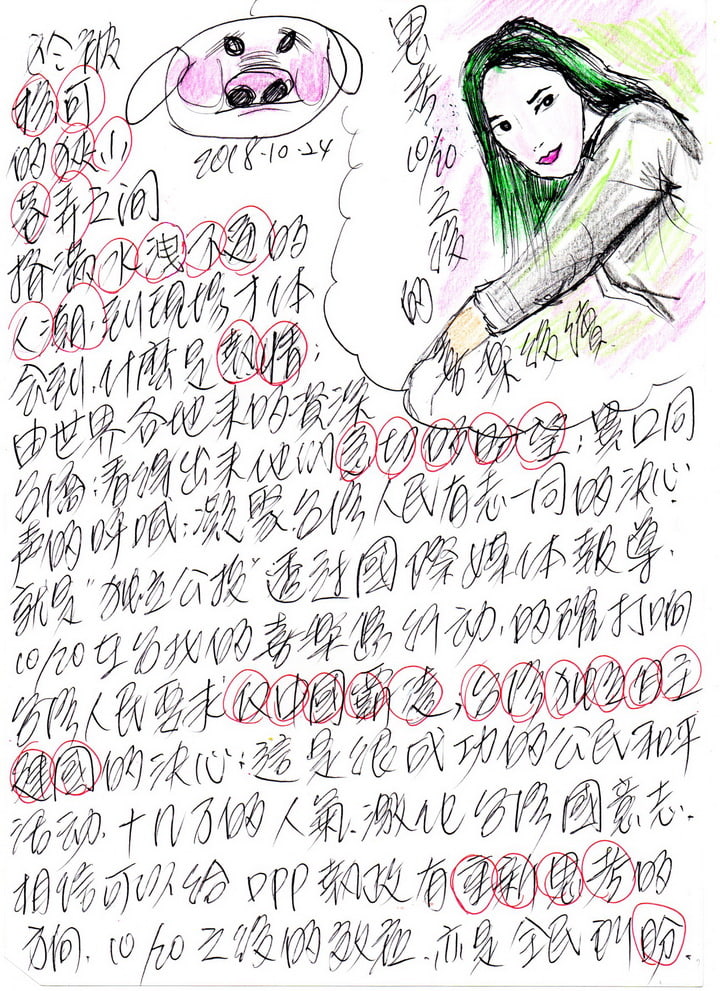 思考10/20之後的
後續
2018-10-24
於被
核可
的狹小
巷弄之間
擠滿水洩不通的
人潮.到現場才体
會到.什麼是熱情;
由世界各地來的資深
台僑;看得出來他們急切的盼望;異口同
声的呼喊;凝聚台湾人民有志一同的决心
就是"独立公投"透过國際媒体報導.
10/20在台北的喜樂島行动.的確打响
台湾人民要求反中國霸凌;台湾独立自主
建國的决心;這是很成功的公民和平
活动.十几万的人氣.激化台湾國意志.
相信可以給DPP執政有重新思考的
方向.10/20之後的效应.亦是全民所盼.